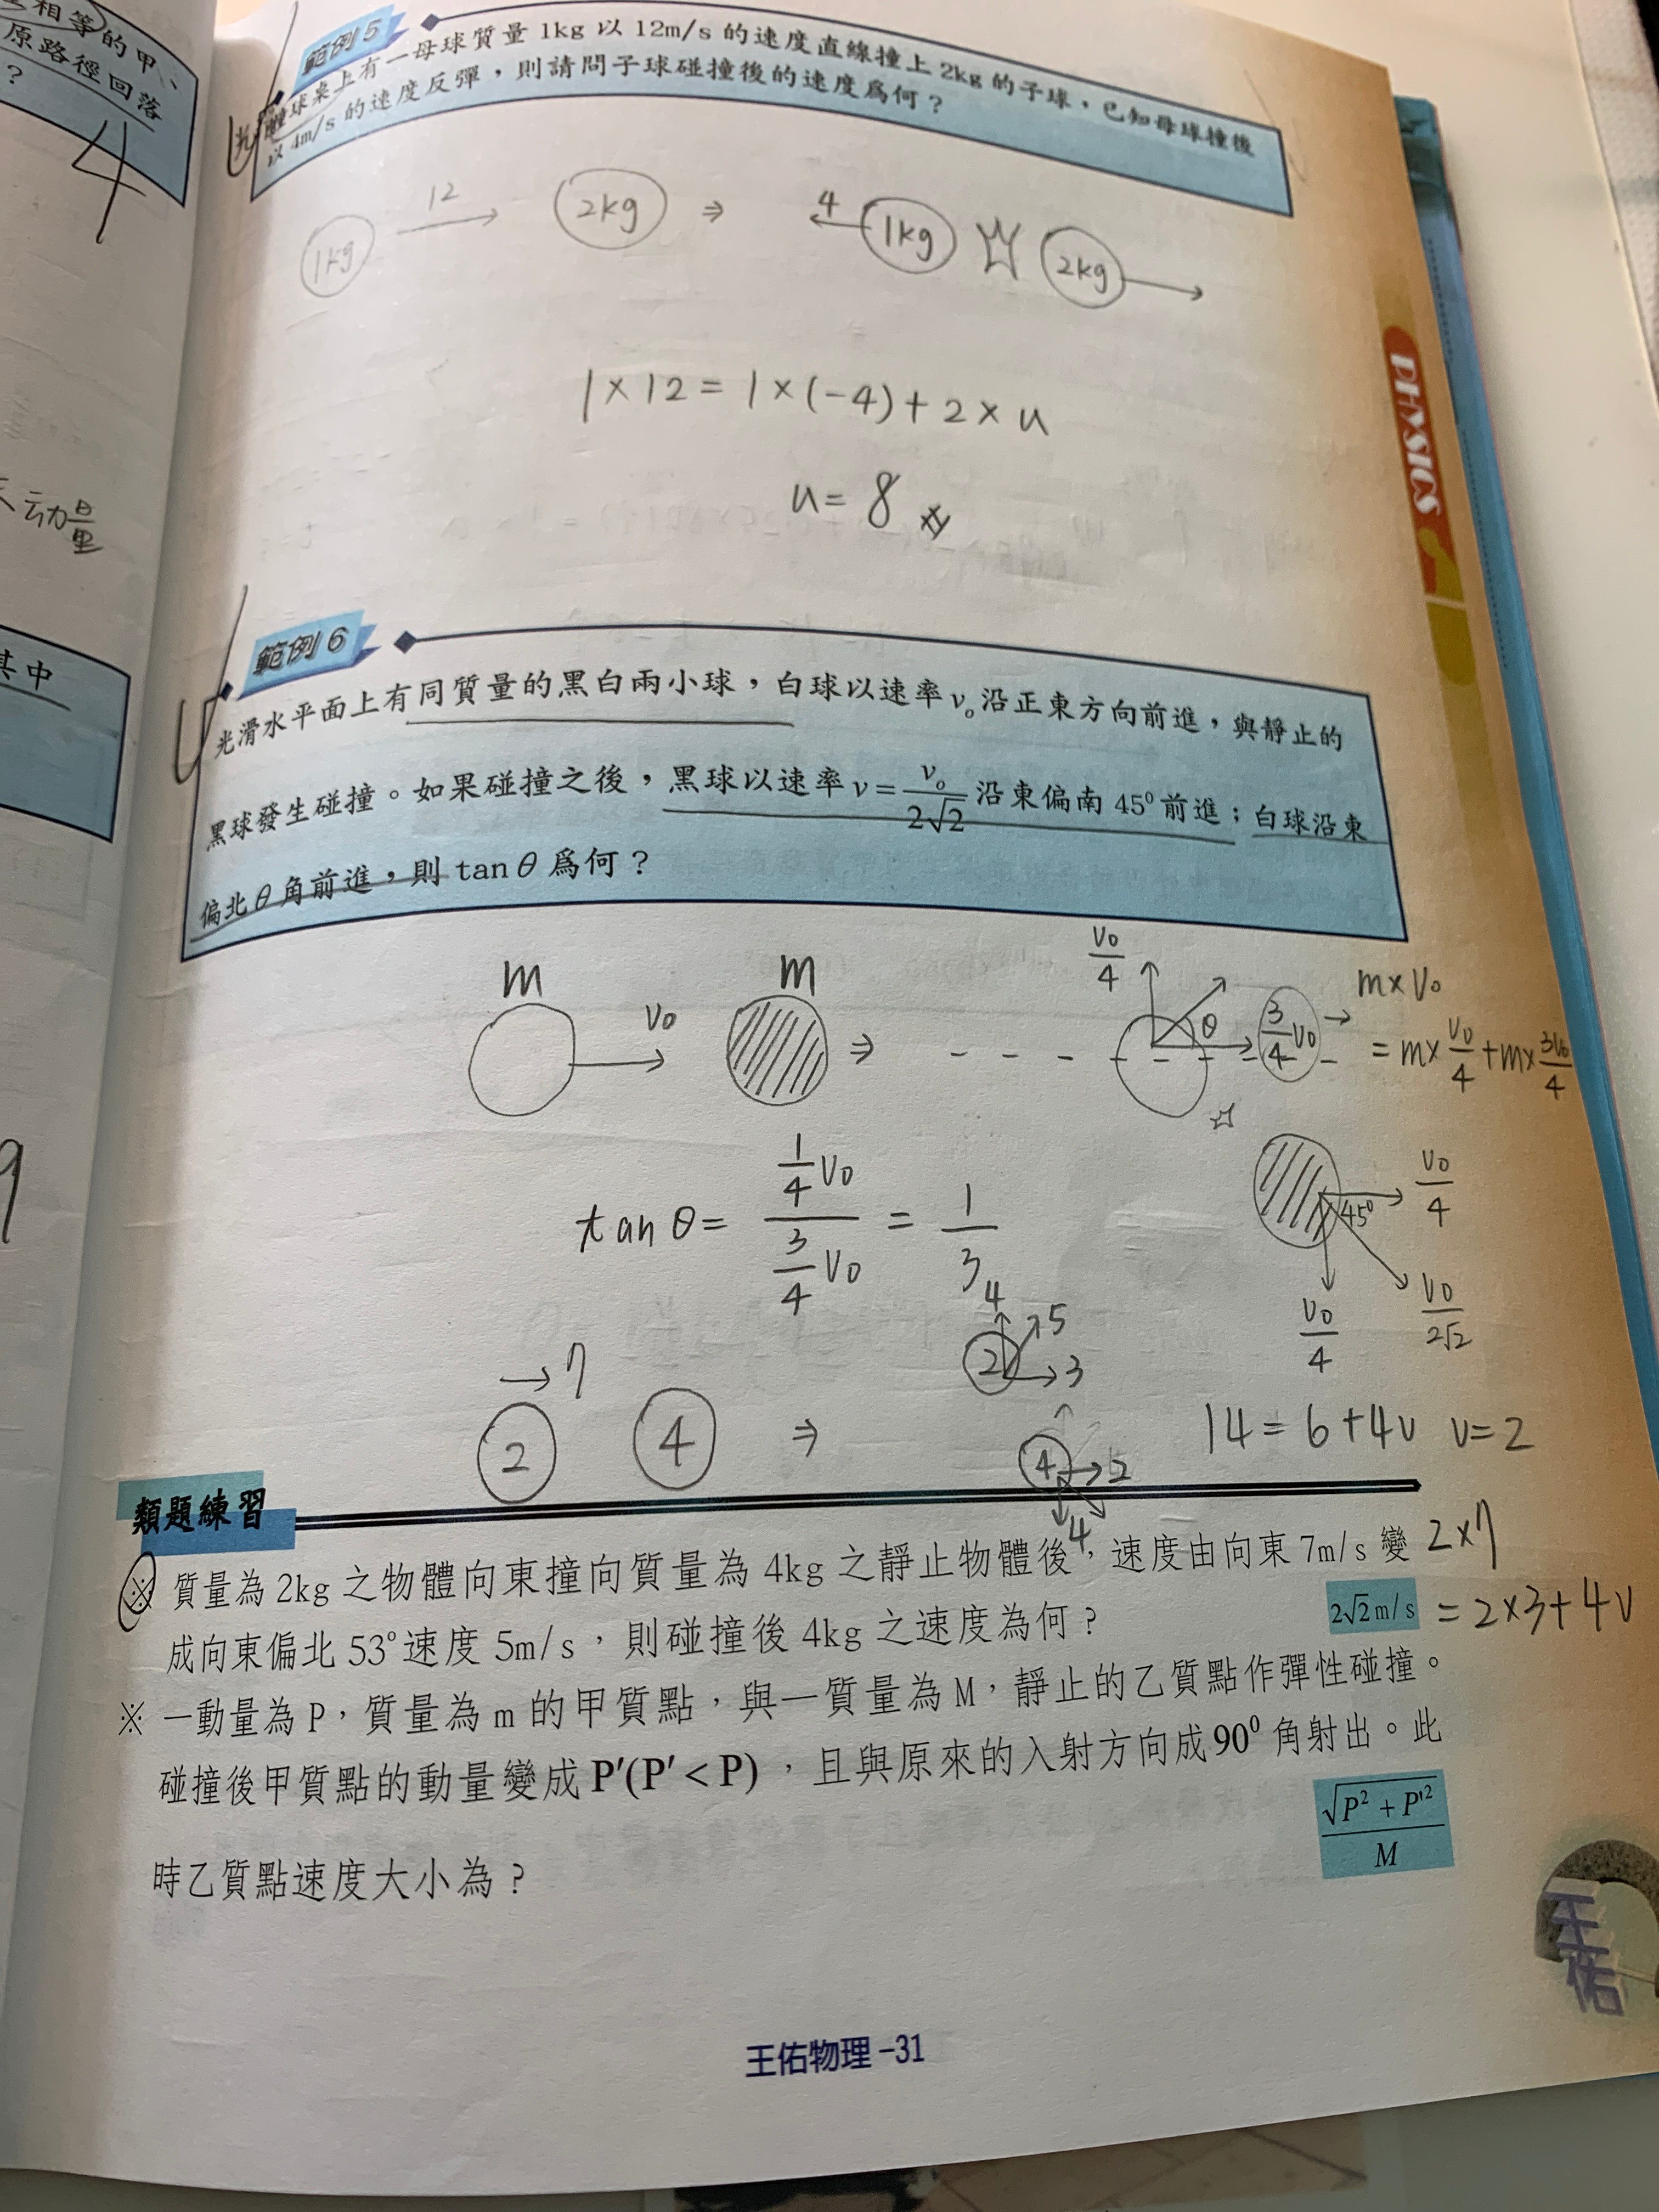 相等的甲、
原路徑回落
?
4
动量
其中
9
範例 5
撞球桌上有一母球質量 1kg 以 12m/s 的速度直線撞上 2kg 的子球，已知母球撞後
以 4m/s 的速度反彈，則請問子球碰撞後的速度為何？
1kg 12 2kg ⇒ 4 1kg 2kg
1×12 = 1×(-4)+2×u
u= 8
PHYSICS
範例 6
光滑水平面上有同質量的黑白兩小球，白球以速率 v₀ 沿正東方向前進，與靜止的
黑球發生碰撞。如果碰撞之後，黑球以速率 v = v₀/2√2 沿東偏南 45⁰ 前進；白球沿東
偏北 θ 角前進，則 tan θ 為何？
m v₀ m ⇒ v₀/4 θ 3/4 v₀ → m×v₀
= m× v₀/4 + m× 3v₀/4
tan θ = 1/4 v₀ / 3/4 v₀ = 1/3
45⁰ v₀/4
v₀/4 v₀/2√2
→7 2 4 ⇒ 4 2 5 3
4 →2 4
14 = 6+4v v=2
類題練習
※ 質量為 2kg 之物體向東撞向質量為 4kg 之靜止物體後，速度由向東 7m/s 變 2×7
成向東偏北 53°速度 5m/s，則碰撞後 4kg 之速度為何？ 2√2 m/s =2×3+4v
※ 一動量為 P，質量為 m 的甲質點，與一質量為 M，靜止的乙質點作彈性碰撞。
碰撞後甲質點的動量變成 P′(P′ < P)，且與原來的入射方向成 90⁰ 角射出。此
時乙質點速度大小為？ √(P² + P′²) / M
王佑
王佑物理 –31